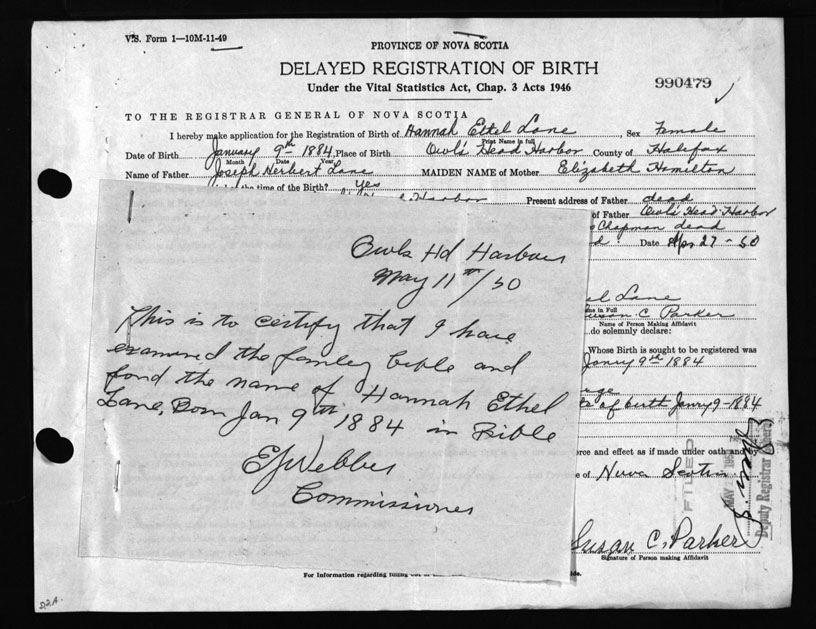 V.S. Form 1—10M-11-49
PROVINCE OF NOVA SCOTIA
DELAYED REGISTRATION OF BIRTH
Under the Vital Statistics Act, Chap. 3 Acts 1946
990479
TO THE REGISTRAR GENERAL OF NOVA SCOTIA
I hereby make application for the Registration of Birth of Hannah Ethel Lane, Sex Female
Print Name in full
Date of Birth January 9th 1884, Place of Birth Owls Head Harbor County of Halifax
Month Date Year
Name of Father Joseph Herbert Lane MAIDEN NAME of Mother Elizabeth Hamilton
the time of the Birth? Yes
Harbor Present address of Father dead
of Father Owls Head Harbor
Chapman dead
Date Apr 27-50
Owls Hd Harbour
May 11th/50
This is to certify that I have
examined the famley bible and
fond the name of Hannah Ethel
Lane, Born Jan 9th 1884 in Bible
EJ Webber
Commissioner
el Lane
me in Full
Susan C Parker
Name of Person Making Affidavit
do solemnly declare:
Whose Birth is sought to be registered was
Janry 9th 1884
of birth Janry 9-1884
orce and effect as if made under oath and
of Nova Scotia
FILED
MAY
Deputy Registrar
Susan C. Parker
Signature of Person making Affidavit
For Information regarding filling out of
D.2.A.